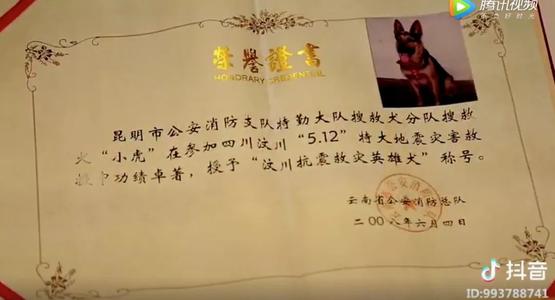 腾讯视频
荣誉證書
HONORARY CREDENTIAL
昆明市公安消防支队特勤大队搜救犬分队搜救
犬“小虎”在参加四川汶川“5.12”特大地震灾害救
援中功绩卓著，授予“汶川抗震救灾英雄犬”称号。
云南省公安消防总队
二00八年六月四日
抖音
ID:993788741